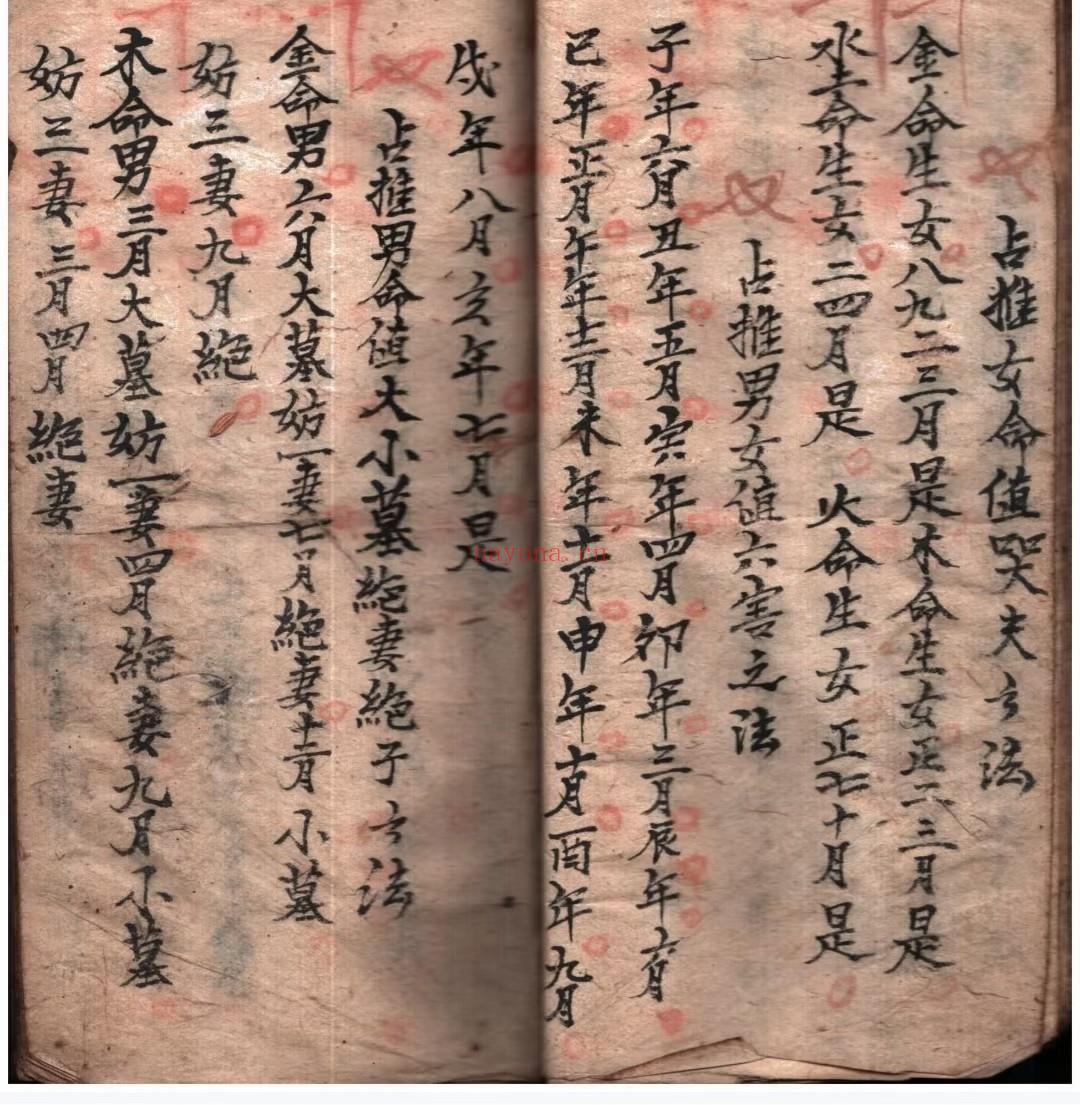 占推女命值哭夫之法
金命生女八九二三月是木命生女正二三月是
水土命生女二四月是 火命生女正七十月是
占推男女值六害之法
子年六月丑年五月寅年四月卯年三月辰年六月
巳年正月午年十二月未年十一月申年十月酉年九月
戌年八月亥年七月是
占推男命值大小墓絶妻絶子之法
金命男六月大墓妨一妻七月絶妻十二月小墓
妨三妻九月絶
木命男三月大墓妨一妻四月絶妻九月小墓
妨三妻三月四月絶妻